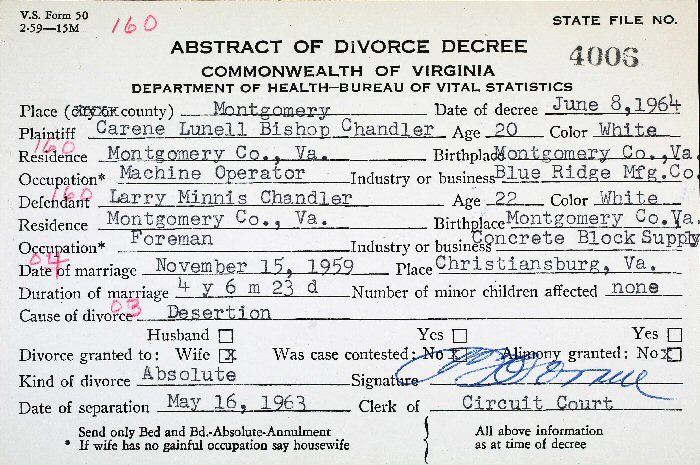 V.S. Form 50
2-59—15M
160
STATE FILE NO.
4006
ABSTRACT OF DiVORCE DECREE
COMMONWEALTH OF VIRGINIA
DEPARTMENT OF HEALTH—BUREAU OF VITAL STATISTICS
Place (city or county) Montgomery Date of decree June 8,1964
Plaintiff Carene Lunell Bishop Chandler Age 20 Color White
160
Residence Montgomery Co., Va. Birthplace Montgomery Co.,Va.
Occupation* Machine Operator Industry or business Blue Ridge Mfg.Co.
160
Defendant Larry Minnis Chandler Age 22 Color White
Residence Montgomery Co., Va. Birthplace Montgomery Co.Va.
Occupation* Foreman Industry or business Concrete Block Supply
04
Date of marriage November 15, 1959 Place Christiansburg, Va.
Duration of marriage 4 y 6 m 23 d Number of minor children affected none
03
Cause of divorce Desertion
Husband Yes Yes
Divorce granted to: Wife X Was case contested: No X Alimony granted: No X
Kind of divorce Absolute Signature
Date of separation May 16, 1963 Clerk of Circuit Court
Send only Bed and Bd.-Absolute-Annulment All above information
* If wife has no gainful occupation say housewife as at time of decree